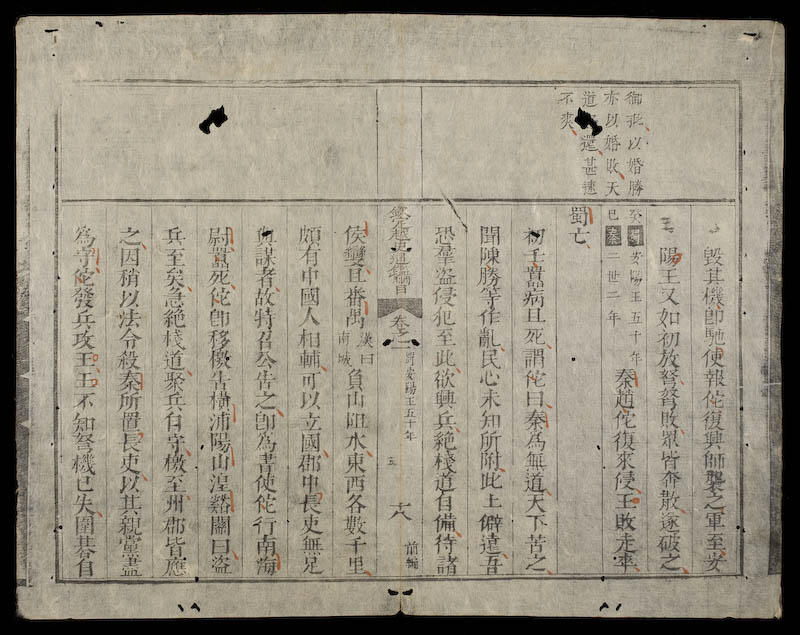 御批以婚勝
亦以婚敗天
道還甚速
不爽
毀其機即馳使報佗復興師襲之軍至安
陽王又如初放弩弩敗眾皆奔散遂破之
癸蜀安陽王五十年
巳秦二世二年
秦趙佗復來侵王敗走卒
蜀亡
初任囂病且死謂佗曰秦為無道天下苦之
聞陳勝等作亂民心未知所附此土僻遠吾
恐羣盜侵犯至此欲興兵絕棧道自備待諸
欽定越史通鑑綱目 卷之一 蜀安陽王五十年 五 十八 前編
侯變且番禺漢曰南城負山阻水東西各數千里
頗有中國人相輔可以立國郡中長吏無足
與謀者故特召公告之即為書使佗行南海
尉囂死佗即移檄告橫浦陽山湟谿關曰盜
兵至矣急絕棧道聚兵自守檄至州郡皆應
之因稍以法令殺秦所置長吏以其親黨盡
為守佗發兵攻王王不知弩機已失圍碁自